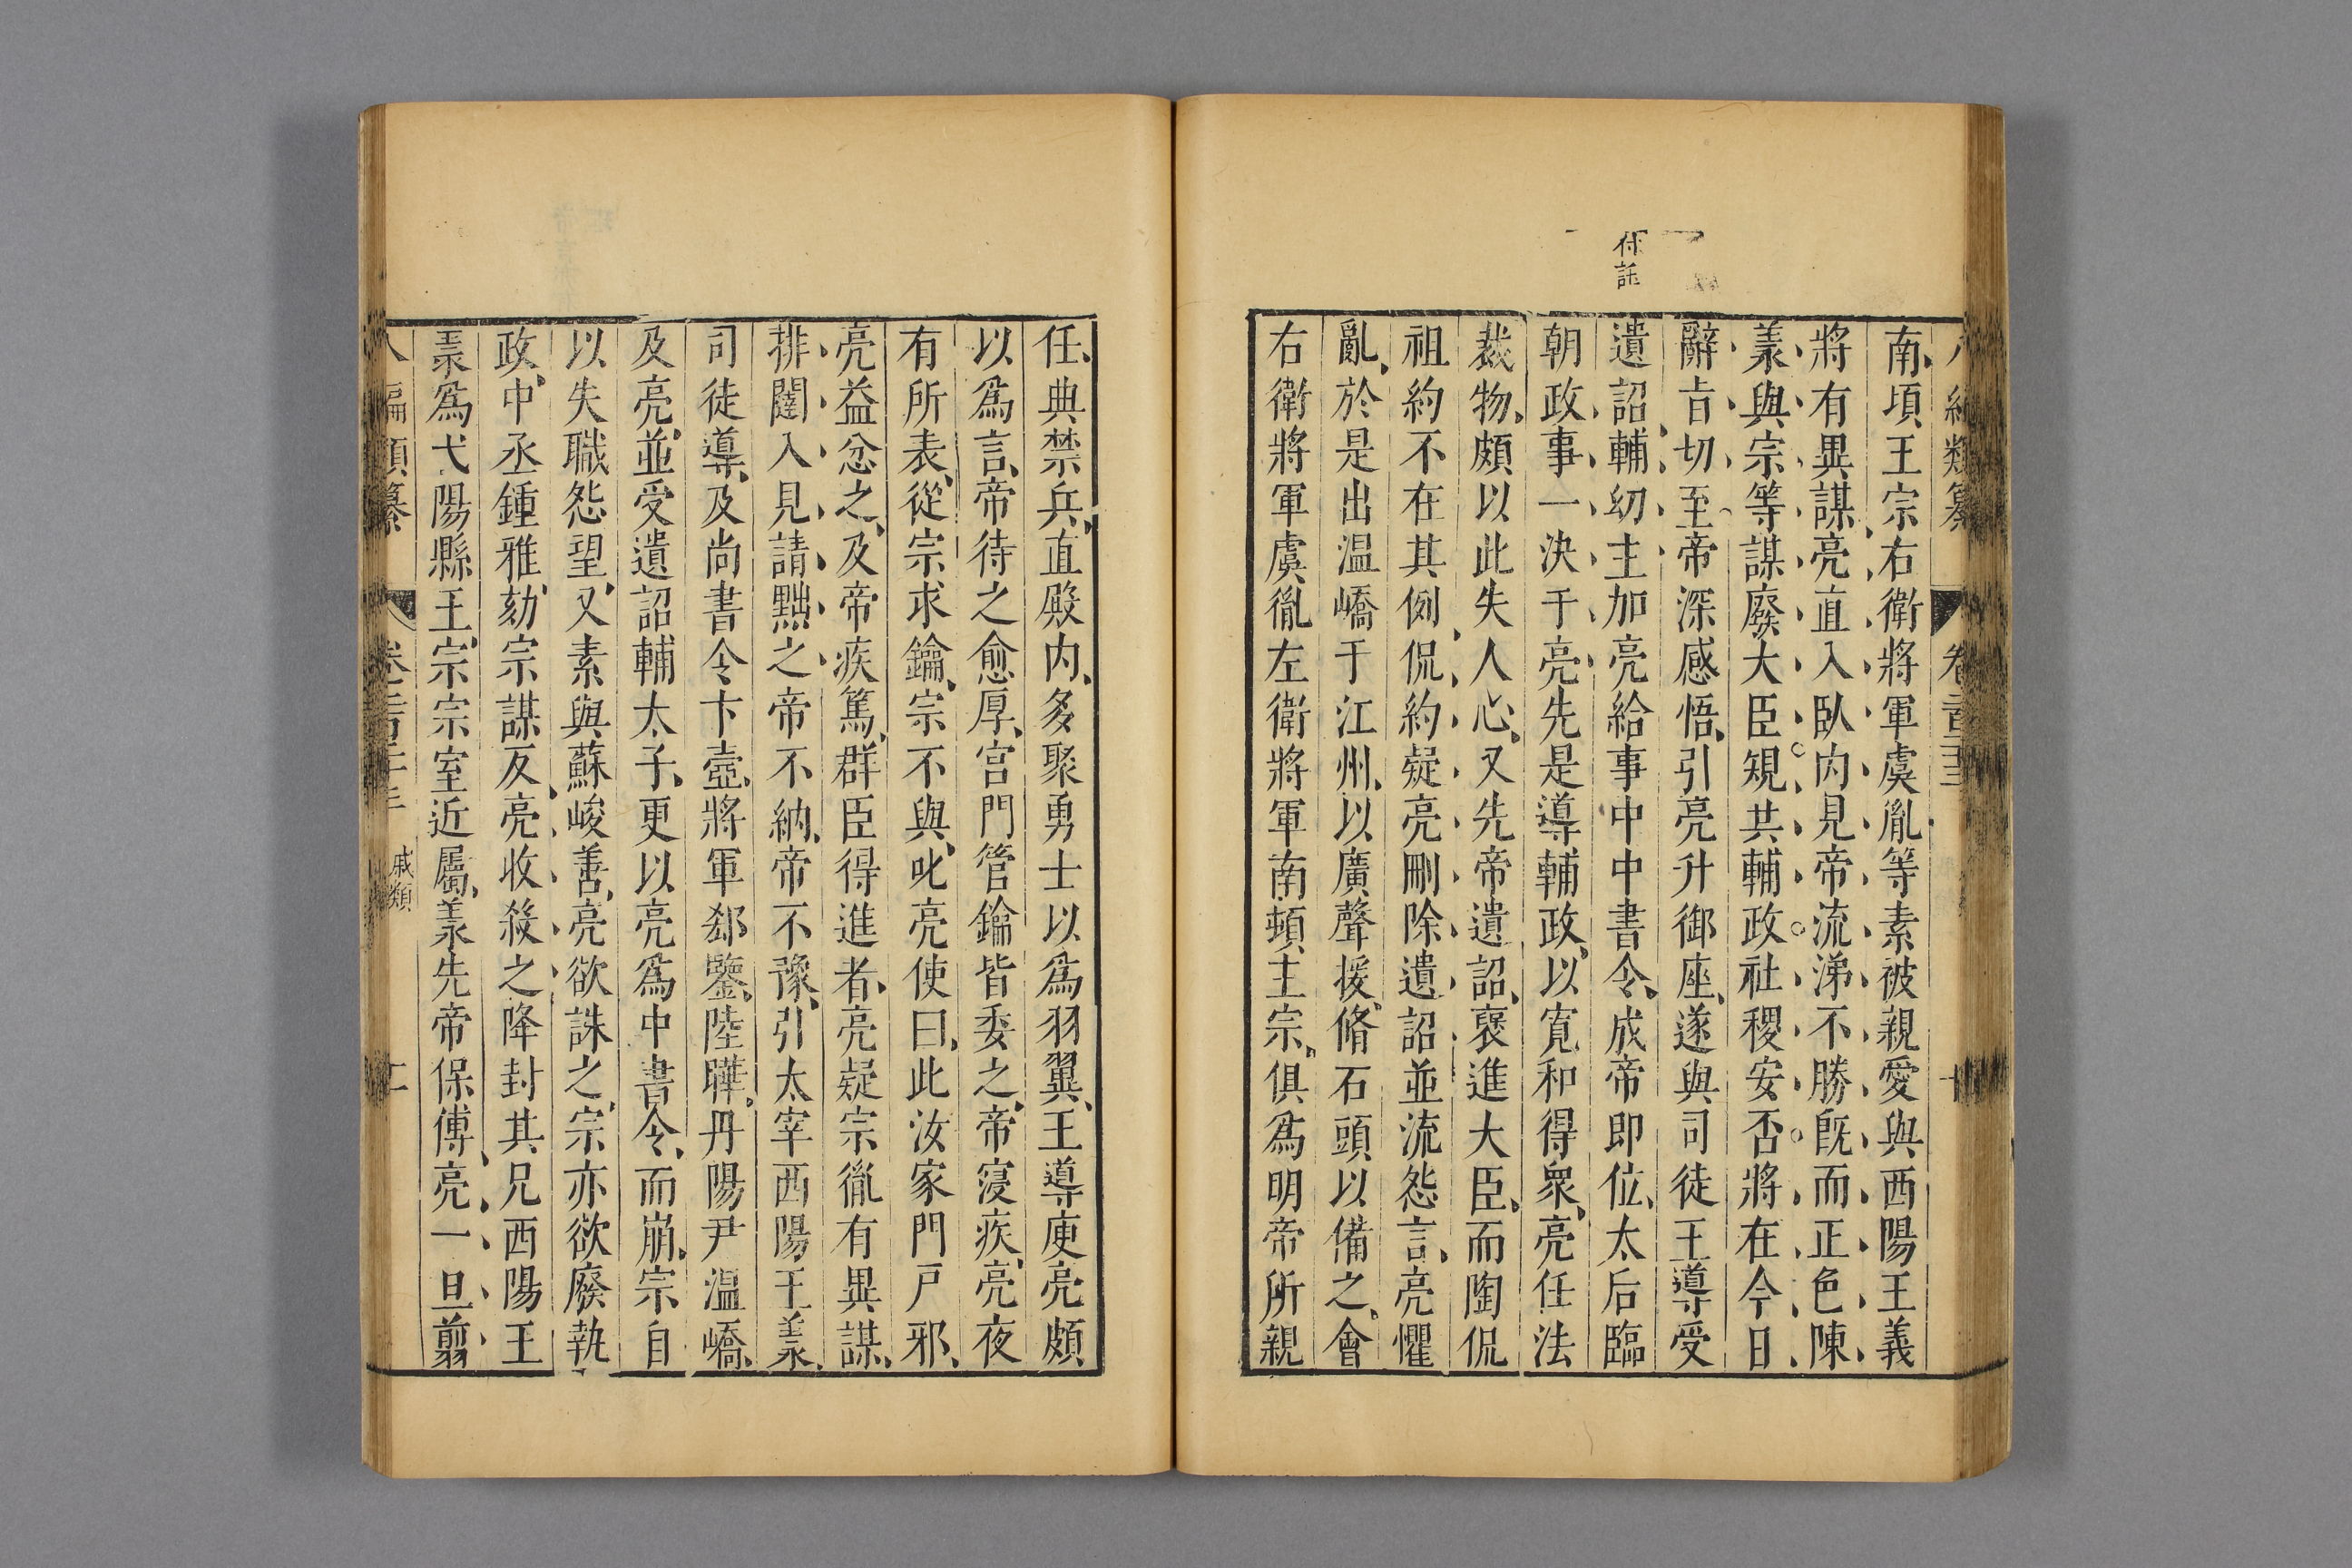 付託
南頃王宗右衛將軍虞胤等素被親愛與西陽王義
將有異謀亮直入臥內見帝流涕不勝既而正色陳
羕與宗等謀廢大臣規共輔政社稷安否將在今日
辭旨切至帝深感悟引亮升御座遂與司徒王導受
遺詔輔幼主加亮給事中中書令成帝即位太后臨
朝政事一決于亮先是導輔政以寬和得衆亮任法
裁物頗以此失人心又先帝遺詔褒進大臣而陶侃
祖約不在其例侃約疑亮刪除遺詔並流怨言亮懼
亂於是出温嶠于江州以廣聲援脩石頭以備之會
右衛將軍虞胤左衛將軍南頓王宗俱爲明帝所親
任典禁兵直殿内多聚勇士以爲羽翼王導庾亮頗
以爲言帝待之愈厚宮門管鑰皆委之帝寝疾亮夜
有所表從宗求鑰宗不與叱亮使曰此汝家門戸邪
亮益忿之及帝疾篤群臣得進者亮疑宗胤有異謀
排闥入見請黜之帝不納帝不豫引太宰西陽王羕
司徒導及尚書令卞壼將軍郄鑒陸曄丹陽尹温嶠
及亮並受遺詔輔太子更以亮爲中書令而崩宗自
以失職怨望又素與蘇峻善亮欲誅之宗亦欲廢執
政中丞鍾雅劾宗謀反亮收殺之降封其兄西陽王
羕爲弋陽縣王宗宗室近屬羕先帝保傅亮一旦翦
編類纂 戚類